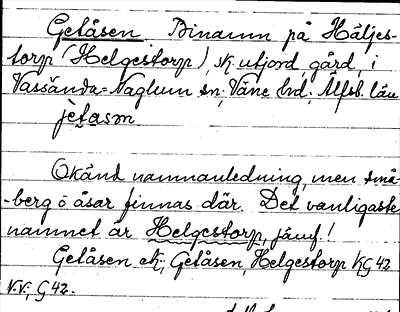 Getåsen. Binamn på Häljes-
torp (Helgestorp), sk. utjord, gård, i
Vassända-Naglum sn, Väne hd, Älfsb. län
jètasɔn
Okänd namnanledning, men små-
-berg o åsar finnas där. Det vanligaste
namnet är Helgestorp, jämf.!
Getåsen ek; Getåsen, Helgestorp KG 42
V.V; G 42.